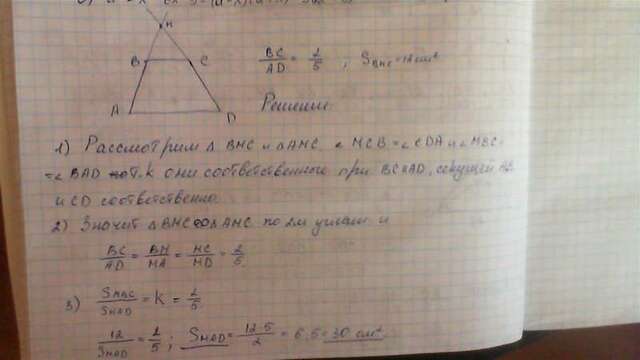 M
B C
A D
BC/AD = 2/5 ; S_BMC = 12 cm²
Решение
1) Рассмотрим Δ BMC и Δ AMC ∠ MCB = ∠ CDA и ∠ MBC
= ∠ BAD т.к они соответственного при BC и AD, секущей AB
и CD соответственно.
2) Значит Δ BMC ∞ Δ AMC по 2м углам и
BC/AD = BM/MA = MC/MD = 2/5
3) S_MBC/S_MAD = K = 2/5
12/S_MAD = 2/5 ; S_MAD = 12·5/2 = 6·5 = 30 см²